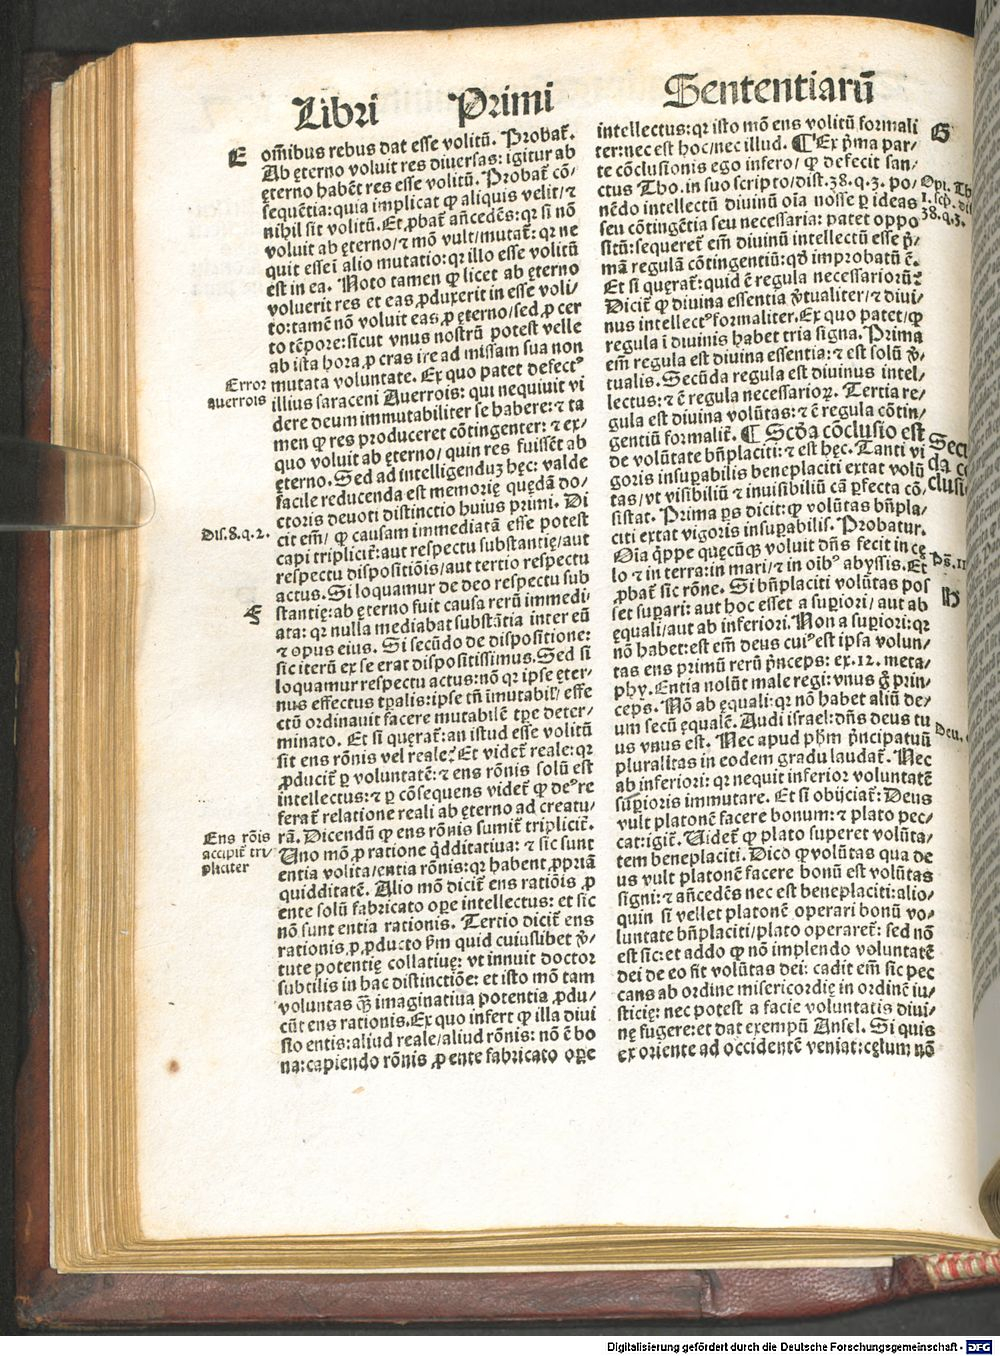 Libri Primi Sententiarũ
E
om̃ibus rebus dat esse volitũ. Probat̃.
Ab ęterno voluit res diuersas: igitur ab
ęterno habẽt res esse volitũ. Probat̃ cõ⸗
sequẽtia: quia implicat ꝙ aliquis velit/ ⁊
nihil sit volitũ. Et ꝓbat̃ añcedẽs: qꝛ si nõ
voluit ab ęterno/ ⁊ mõ vult/ mutat̃: qꝛ ne
quit esse ĩ alio mutatio: qꝛ illo esse volitũ
est in ea. Noto tamen ꝙ licet ab ęterno
voluerit res et eas ꝓduxerit in esse voli⸗
to: tamẽ nõ voluit eas ꝓ ęterno/ sed ꝓ cer
to tẽpore: sicut vnus nostrũ potest velle
ab ista hora ꝓ cras ire ad missam sua non
mutata voluntate. Ex quo patet defectꝰ
illius saraceni Auerrois: qui nequiuit vi
dere deum immutabiliter se habere: ⁊ ta
men ꝙ res produceret cõtingenter: ⁊ ex⸗
quo voluit ab ęterno/ quin res fuissẽt ab
ęterno. Sed ad intelligenduꝫ hęc: valde
facile reducenda est memorię quędã do⸗
ctoris deuoti distinctio huius primi. Di
cit em̃/ ꝙ causam immediatã esse potest
capi tripliciť: aut respectu substantię/ aut
respectu dispositiõis/ aut tertio respectu
actus. Si loquamur de deo respectu sub
stantię: ab ęterno fuit causa rerũ immedi⸗
ata: qꝛ nulla mediabat substãtia inter eũ
⁊ opus eius. Si secũdo de dispositione:
sic iterũ ex se erat dispositissimus. Sed si
loquamur respectu actus: nõ qꝛ ipse ęter⸗
nus effectus tꝑalis: ipse tñ ĩmutabil̛ effe
ctũ ordinauit facere mutabilẽ tꝑe deter⸗
minato. Et si quęrat̃: an istud esse volitũ
sit ens rõnis vel reale? Et videt̃ reale: qꝛ
ꝓducit̃ ꝑ voluntatẽ: ⁊ ens rõnis solũ est
intellectus: ⁊ ꝑ cõsequens videt̃ ꝙ deꝰ re
ferat̃ relatione reali ab ęterno ad creatu⸗
rã. Dicendũ ꝙ ens rõnis sumit̃ tripliciť.
Uno mõ ꝓ ratione q̃dditatiua: ⁊ sic sunt
entia volita/ entia rõnis: qꝛ habent ꝓpriã
quidditatẽ. Alio mõ dicit̃ ens ratiõis ꝓ
ente solũ fabricato oꝑe intellectus: et sic
nõ sunt entia rationis. Tertio dicit̃ ens
rationis ꝓ ꝓducto ẜm quid cuiuslibet ṽ⸗
tute potentię collatiuę: vt innuit doctor
subtilis in hac distinctiõe: et isto mõ tam
voluntas q̃ꝫ imaginatiua potentia ꝓdu⸗
cũt ens rationis. Ex quo infert ꝙ illa diui
sio entis: aliud reale/ aliud rõnis: nõ ẽ bo
na: capiendo rõnis ꝓ ente fabricato oꝑe
Error
auerrois
Dis. 8. q. 2.
F
Ens rõis
accipit̃ tri⸗
pliciter
intellectus: qꝛ isto mõ ens volitũ formali
ter: nec est hoc/ nec illud. ¶ Ex p̃ma par⸗
te cõclusionis ego infero/ ꝙ defecit san⸗
ctus Tho. in suo scripto/ dist. 38. q. 3. po⸗
nẽdo intellectũ diuinũ oĩa nosse ꝑ ideas
seu cõtingẽtia seu necessaria: patet oppo
situ: sequeret̃ em̃ diuinũ intellectũ esse p̃⸗
mã regulã cõtingentiũ: qð improbatũ ẽ.
Et si quęrat̃: quid ẽ regula necessariorũ?
Dicit̃ ꝙ diuina essentia ṽtualiter/ ⁊ diui⸗
nus intellectꝰ formaliter. Ex quo patet/ ꝙ
regula ĩ diuinis habet tria signa. Prima
em̃ regula est diuina essentia: ⁊ est solũ ṽ⸗
tualis. Secũda regula est diuinus intel⸗
lectus: ⁊ ẽ regula necessarioꝝ. Tertia re⸗
gula est diuina volũtas: ⁊ ẽ regula cõtin⸗
gentiũ formaliť. ¶ Scďa cõclusio est
de volũtate bñplaciti: ⁊ est hęc. Tanti vi
goris insuꝑabilis beneplaciti extat volũ
tas/ vt visibiliũ ⁊ inuisibiliũ cã ꝑfecta cõ⸗
sistat. Prima ꝑs dicit: ꝙ volũtas bñpla⸗
citi extat vigoris insuꝑabilis. Probatur.
Oĩa q̃ppe quęcũqꝫ voluit dñs fecit in cę
lo ⁊ in terra: in mari/ ⁊ in oibꝰ abyssis. Et
ꝓbat̃ sic rõne. Si bñplaciti volũtas pos
set suꝑari: aut hoc esset a suꝑiori/ aut ab
ęquali/ aut ab inferiori. Non a suꝑiori: qꝛ
nõ habet: est em̃ deus cuiꝰ est ipsa volun⸗
tas ens primũ rerũ p̃nceps: ex. 12. meta⸗
phy. Entia nolũt male regi: vnus g̃ prin⸗
ceps. Nõ ab ęquali: qꝛ nõ habet aliũ de⸗
um secũ ęqualẽ. Audi israel: dñs deus tu
us vnus est. Nec apud pħm p̃ncipatuũ
pluralitas in eodem gradu laudat̃. Nec
ab inferiori: qꝛ nequit inferior voluntatẽ
suꝑioris immutare. Et si obijciat̃: Deus
vult platonẽ facere bonum: ⁊ plato pec⸗
cat: igit̃. Uidet̃ ꝙ plato superet volũta⸗
tem beneplaciti. Dico ꝙ volũtas qua de
us vult platonẽ facere bonũ est volũtas
signi: ⁊ añcedẽs nec est beneplaciti: alio⸗
quin si vellet platonẽ operari bonũ vo⸗
luntate bñplaciti/ plato operaret̃: sed nõ
est sic: et addo ꝙ nõ implendo voluntatẽ
dei de eo fit volũtas dei: cadit em̃ sic pec
cans ab ordine misericordię in ordinẽ iu⸗
sticię: nec potest a facie voluntatis diui⸗
nę fugere: et dat exempũ Ansel. Si quis
ex oriente ad occidentẽ veniat: cęlum nõ
G
Opi. Th
1. scp. dis
38. q. 3.
Secũ
da co
clusi
Ps. 11
H
Deu.
Digitalisierung gefördert durch die Deutsche Forschungsgemeinschaft - DFG